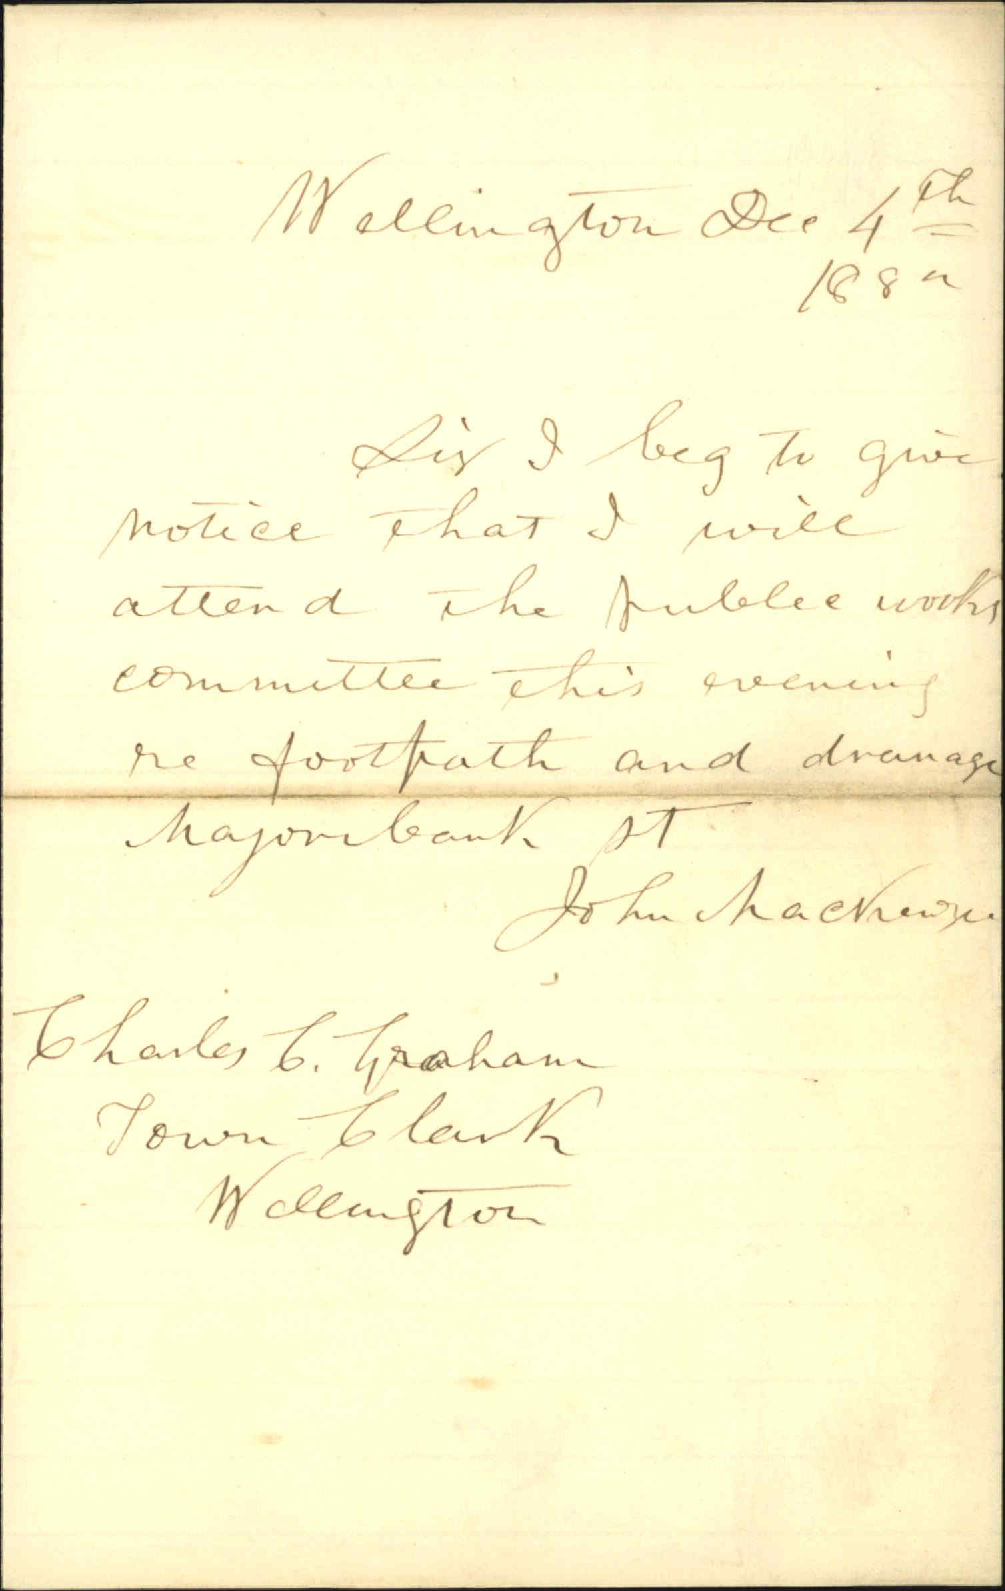 Wellington Dec 4th
188
Sir I beg to give
notice that I will
attend the publec works
committee this evening
re footpath and dranage
Majoribank st
John Mackenzie
Charles C. Graham
Town Clark
Wellington